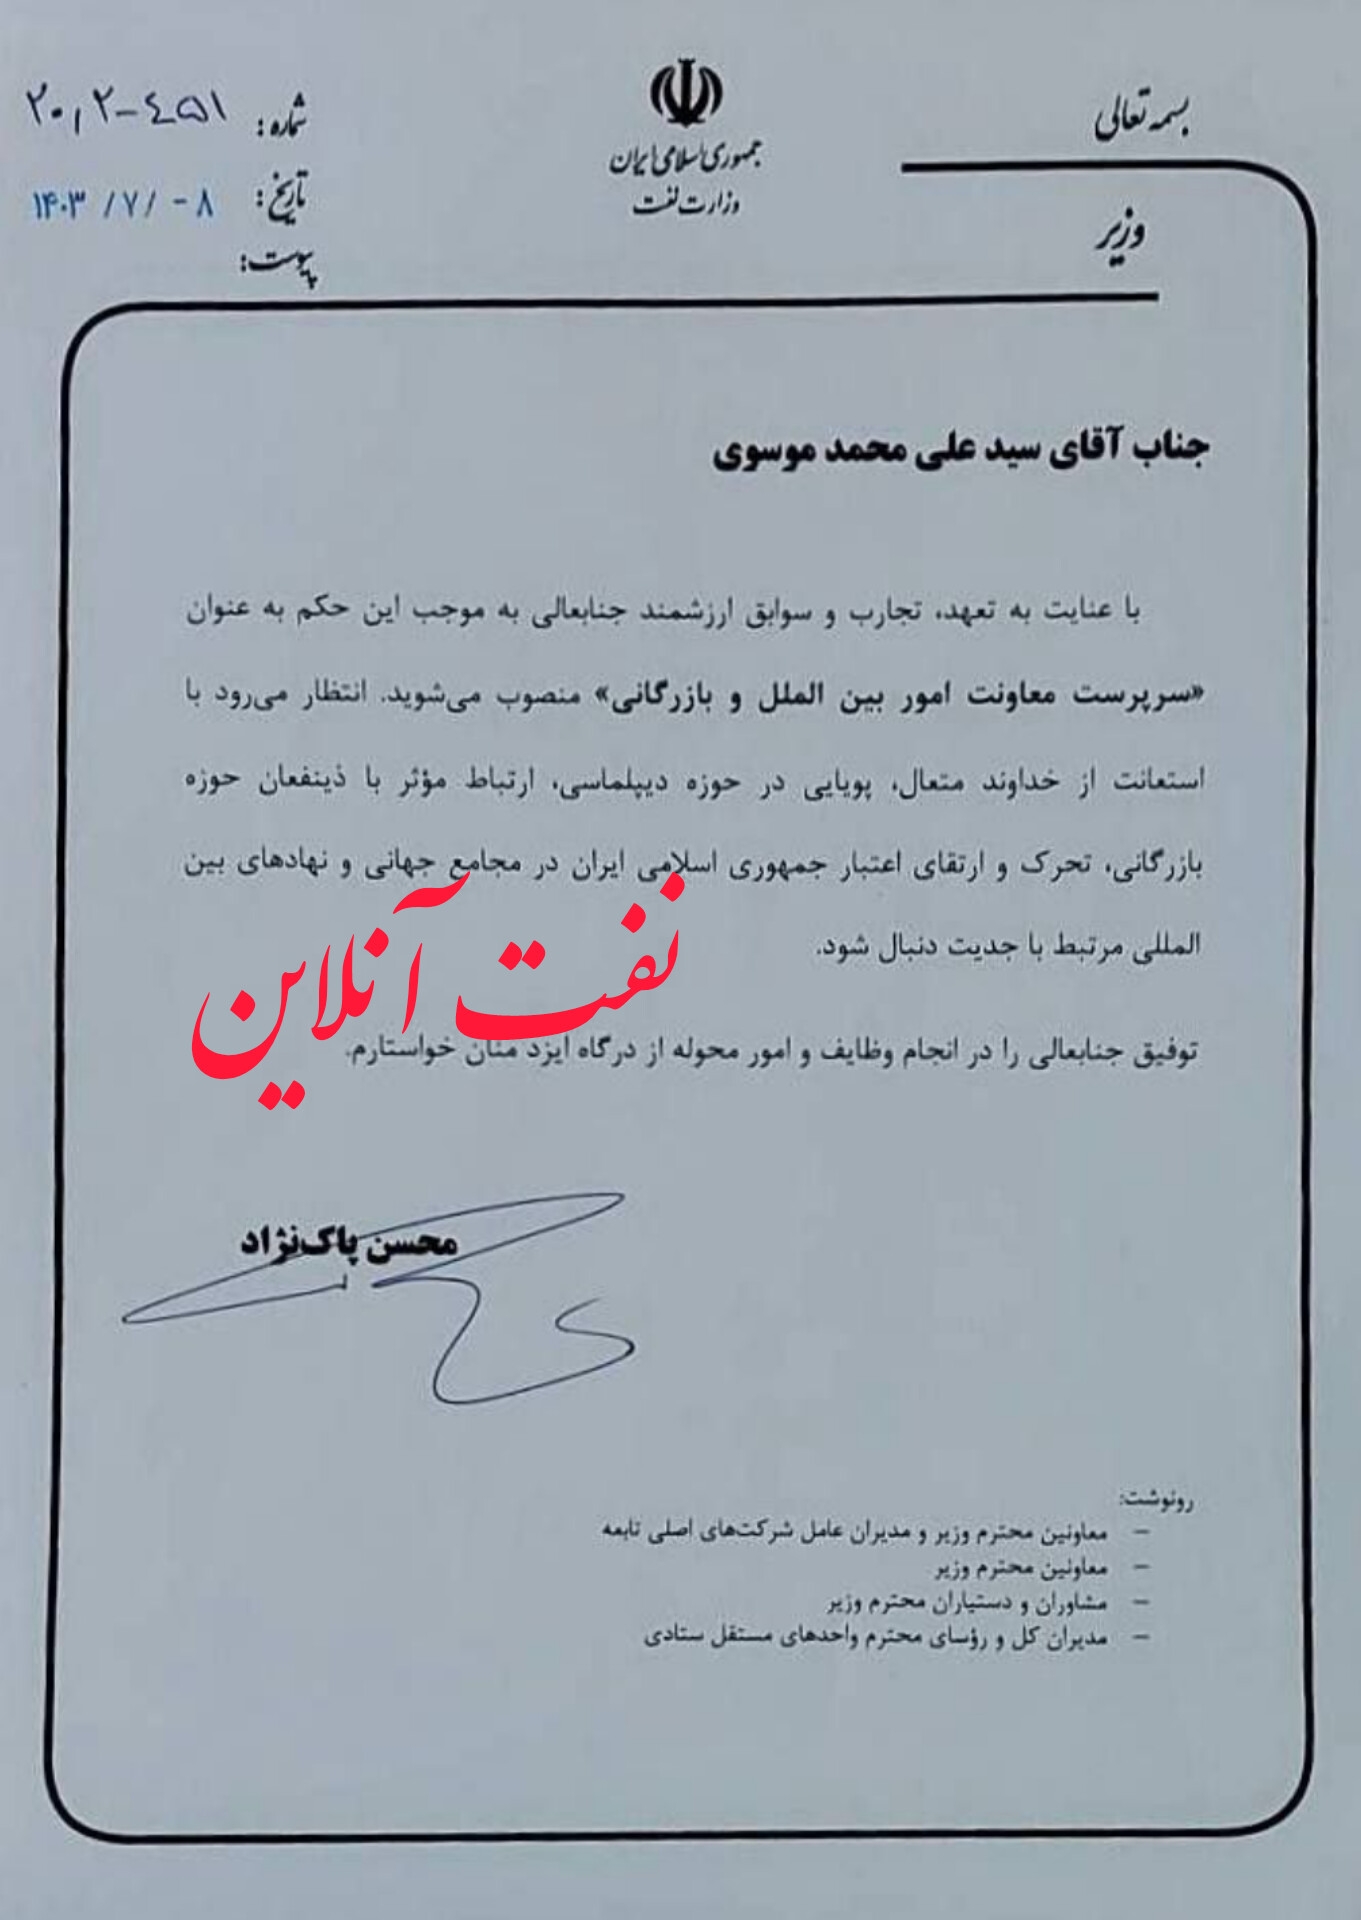 بسمه تعالی
جمهوری اسلامی ایران
وزارت نفت
وزیر
شماره: ۲۰,۲-۴۵۱
تاریخ: ۱۴۰۳ /۷/ -۸
پیوست:
جناب آقای سید علی محمد موسوی
با عنایت به تعهد، تجارب و سوابق ارزشمند جنابعالی به موجب این حکم به عنوان
«سرپرست معاونت امور بین الملل و بازرگانی» منصوب می‌شوید. انتظار می‌رود با
استعانت از خداوند متعال، پویایی در حوزه دیپلماسی، ارتباط مؤثر با ذینفعان حوزه
بازرگانی، تحرک و ارتقای اعتبار جمهوری اسلامی ایران در مجامع جهانی و نهادهای بین
المللی مرتبط با جدیت دنبال شود.
نفت آنلاین
توفیق جنابعالی را در انجام وظایف و امور محوله از درگاه ایزد منان خواستارم.
محسن پاک‌نژاد
رونوشت:
– معاونین محترم وزیر و مدیران عامل شرکت‌های اصلی تابعه
– معاونین محترم وزیر
– مشاوران و دستیاران محترم وزیر
– مدیران کل و رؤسای محترم واحدهای مستقل ستادی